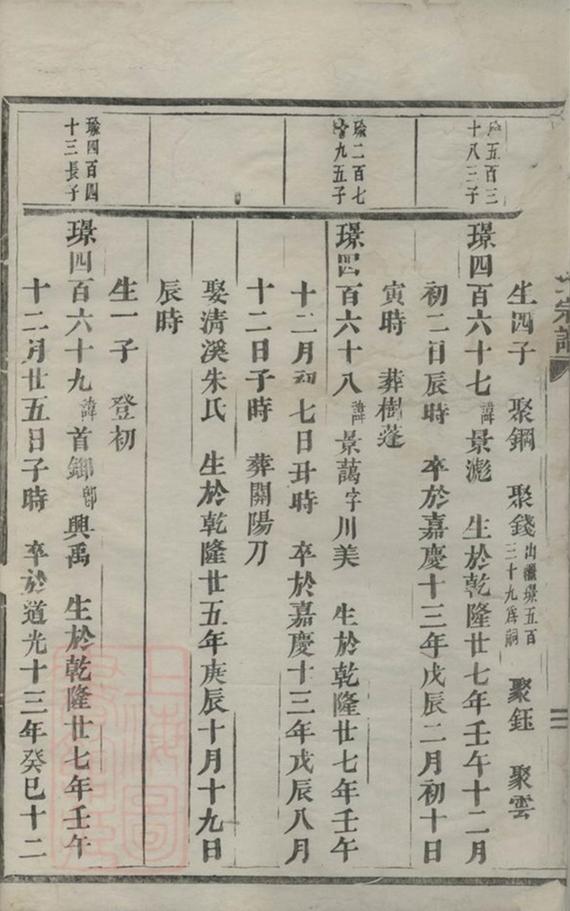 宗譜
生四子 聚鋼 聚錢出繼璟五百三十九爲嗣 聚鈺 聚雲
五百三十八三子
璟四百六十七諱景滮 生於乾隆廿七年壬午十二月
初二日辰時 卒於嘉慶十三年戊辰二月初十日
寅時 葬樹蓬
瑜二百七十九五子
璟四百六十八諱景藹字川美 生於乾隆廿七年壬午
十二月初七日丑時 卒於嘉慶十三年戊辰八月
十二日子時 葬開陽刀
娶清溪朱氏 生於乾隆廿五年庚辰十月十九日
辰時
生一子 登初
瑜四百四十三長子
璟四百六十九諱首鄉卽興禹 生於乾隆廿七年壬午
十二月廿五日子時 卒於道光十三年癸巳十二
上海圖